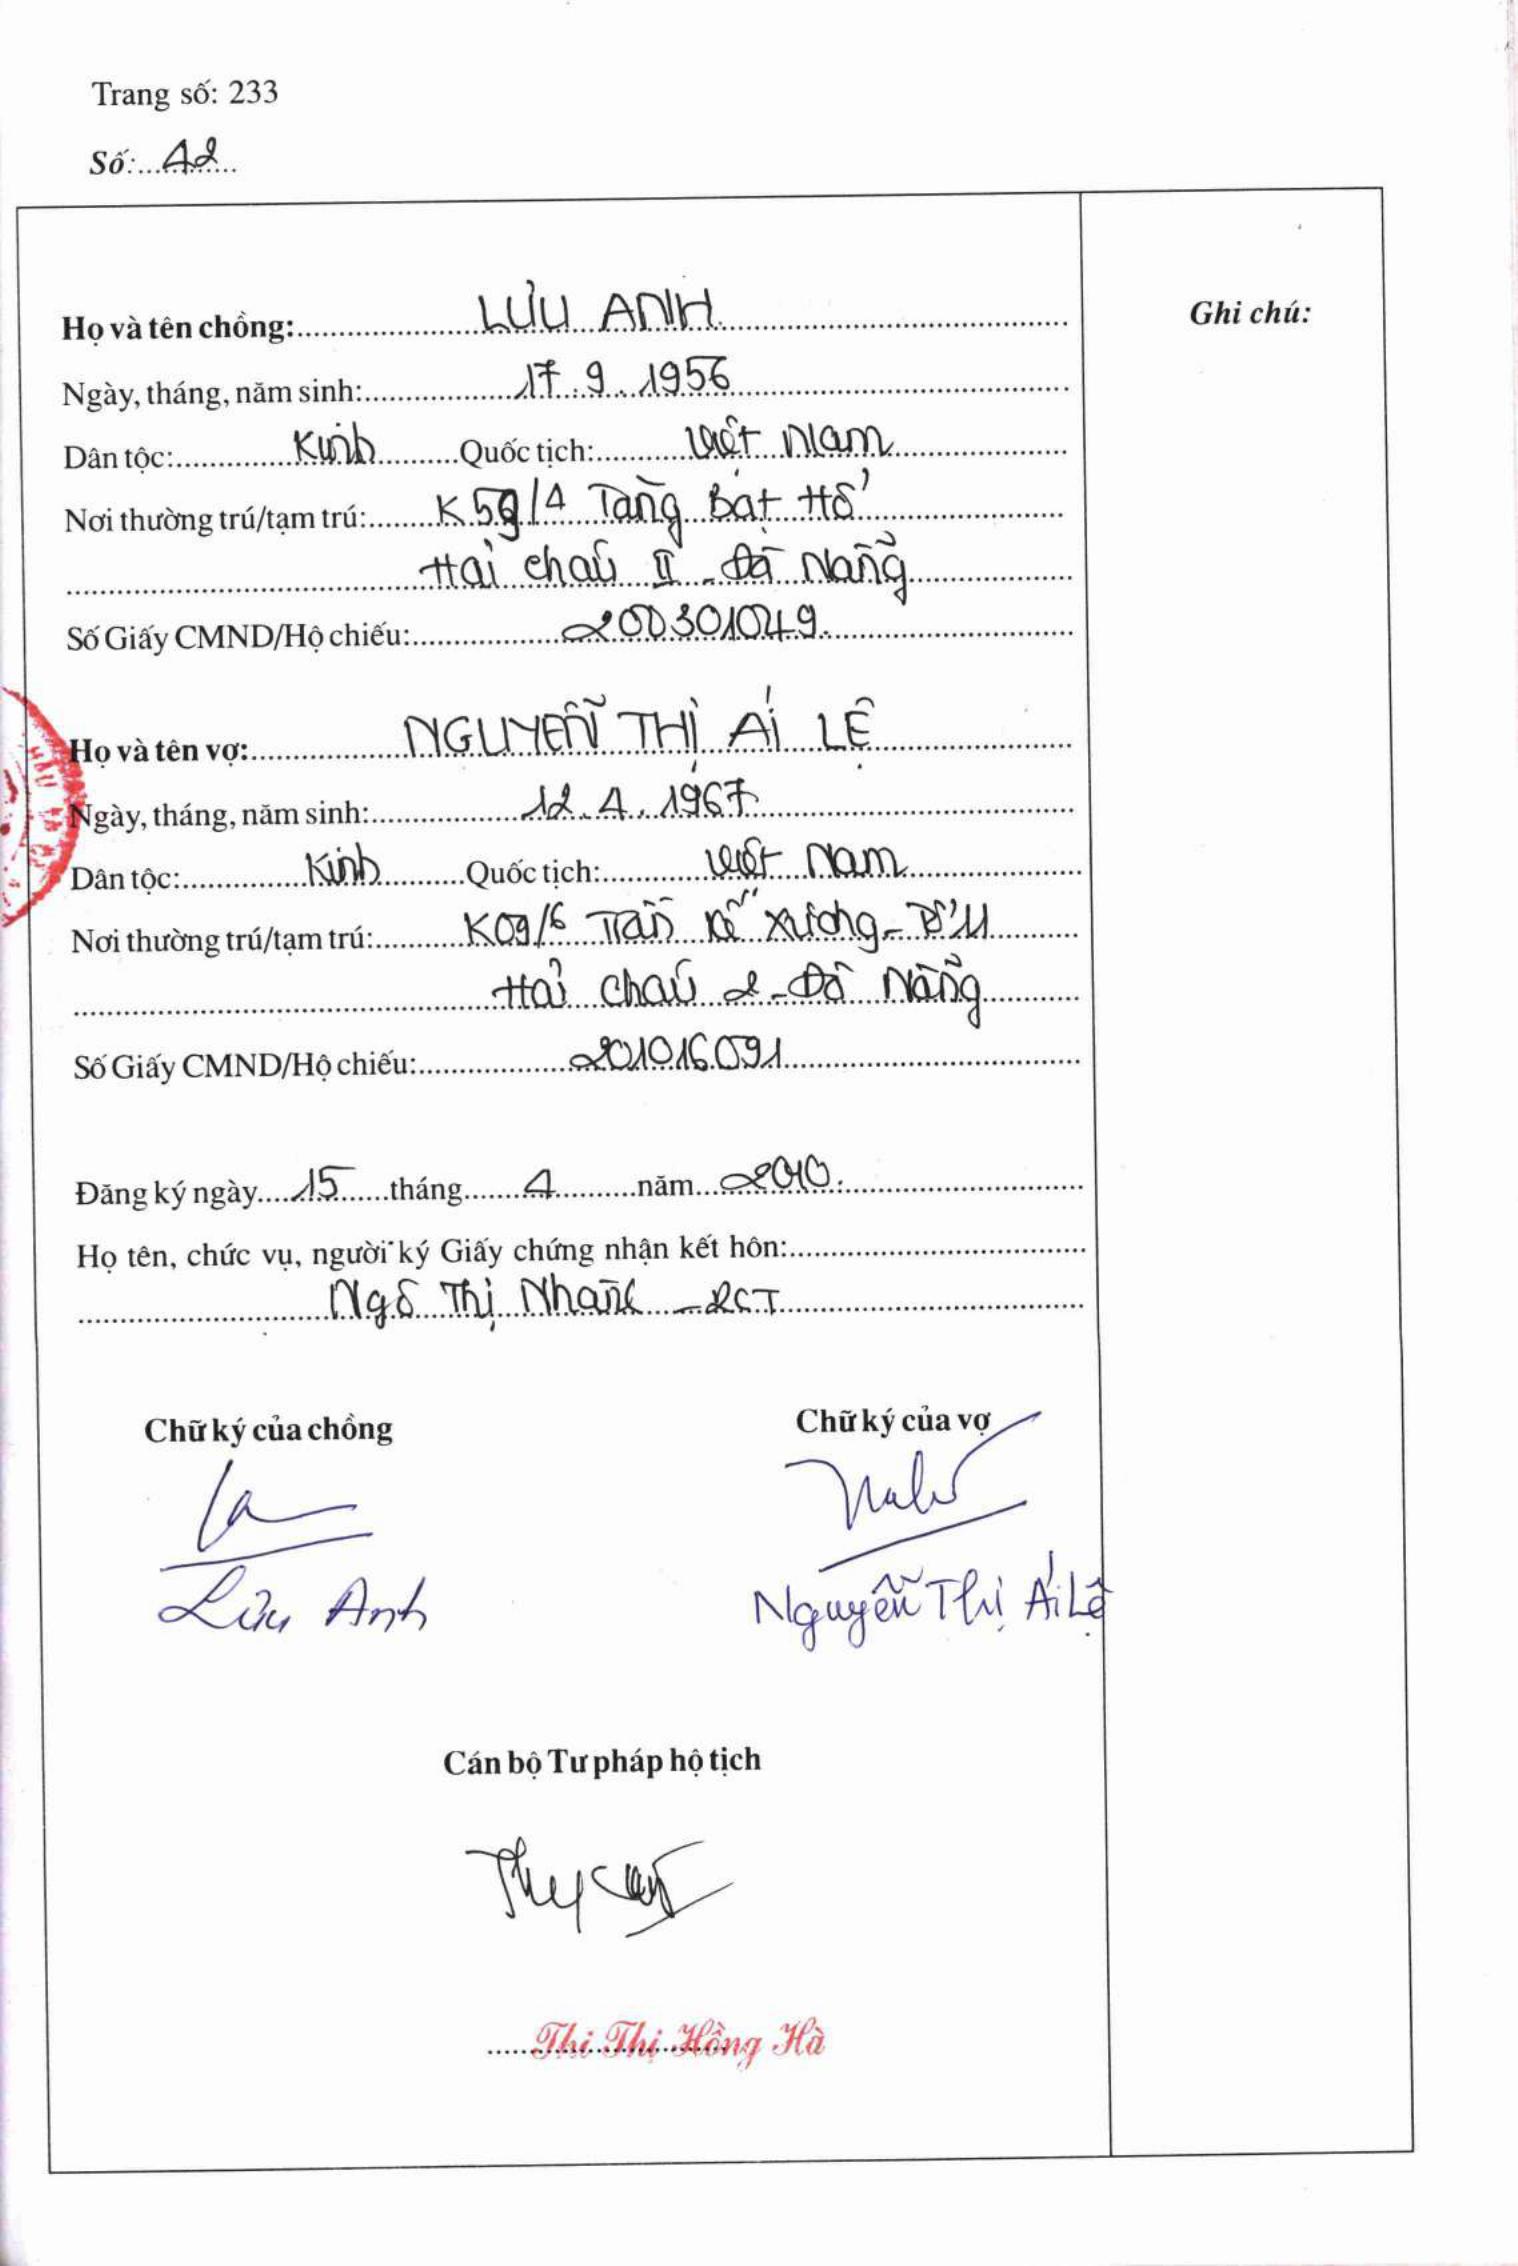 Trang số: 233
Số: 42
Ghi chú:
Họ và tên chồng: LƯU ANH
Ngày, tháng, năm sinh: 17.9.1956
Dân tộc: Kinh Quốc tịch: Việt Nam
Nơi thường trú/tạm trú: K59/4 Tăng Bạt Hổ
Hải Châu II - Đà Nẵng
Số Giấy CMND/Hộ chiếu: 200301049.
Họ và tên vợ: NGUYỄN THỊ ÁI LỆ
Ngày, tháng, năm sinh: 12.4.1967
Dân tộc: Kinh Quốc tịch: Việt Nam
Nơi thường trú/tạm trú: K09/6 Trần Kế Xương -
Hải Châu 2 - Đà Nẵng
Số Giấy CMND/Hộ chiếu: 201016091
Đăng ký ngày 15 tháng 4 năm 2010.
Họ tên, chức vụ, người ký Giấy chứng nhận kết hôn:
Ngô Thị Nhạn -
Chữ ký của chồng Chữ ký của vợ
Lưu Anh Nguyễn Thị Ái Lệ
Cán bộ Tư pháp hộ tịch
Thi Thị Hồng Hà